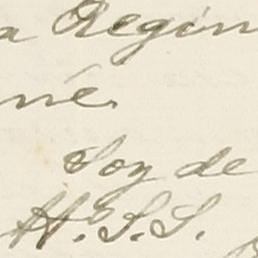 a Regin
né.
Soy de
H. S. S.